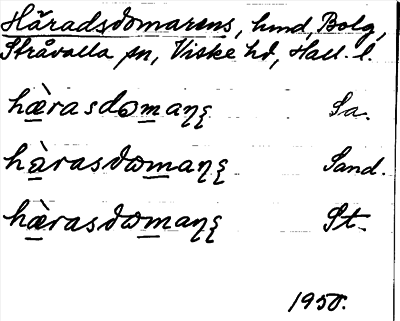 Häradsdomarens, hund, Bolg,
Stråvalla sn, Viske hd, Hall. l.
hæ̀rasdωmaŋs Sa.
hàrasdωmaŋs Sand.
hæ̀rasdωmaŋs St.
1958.